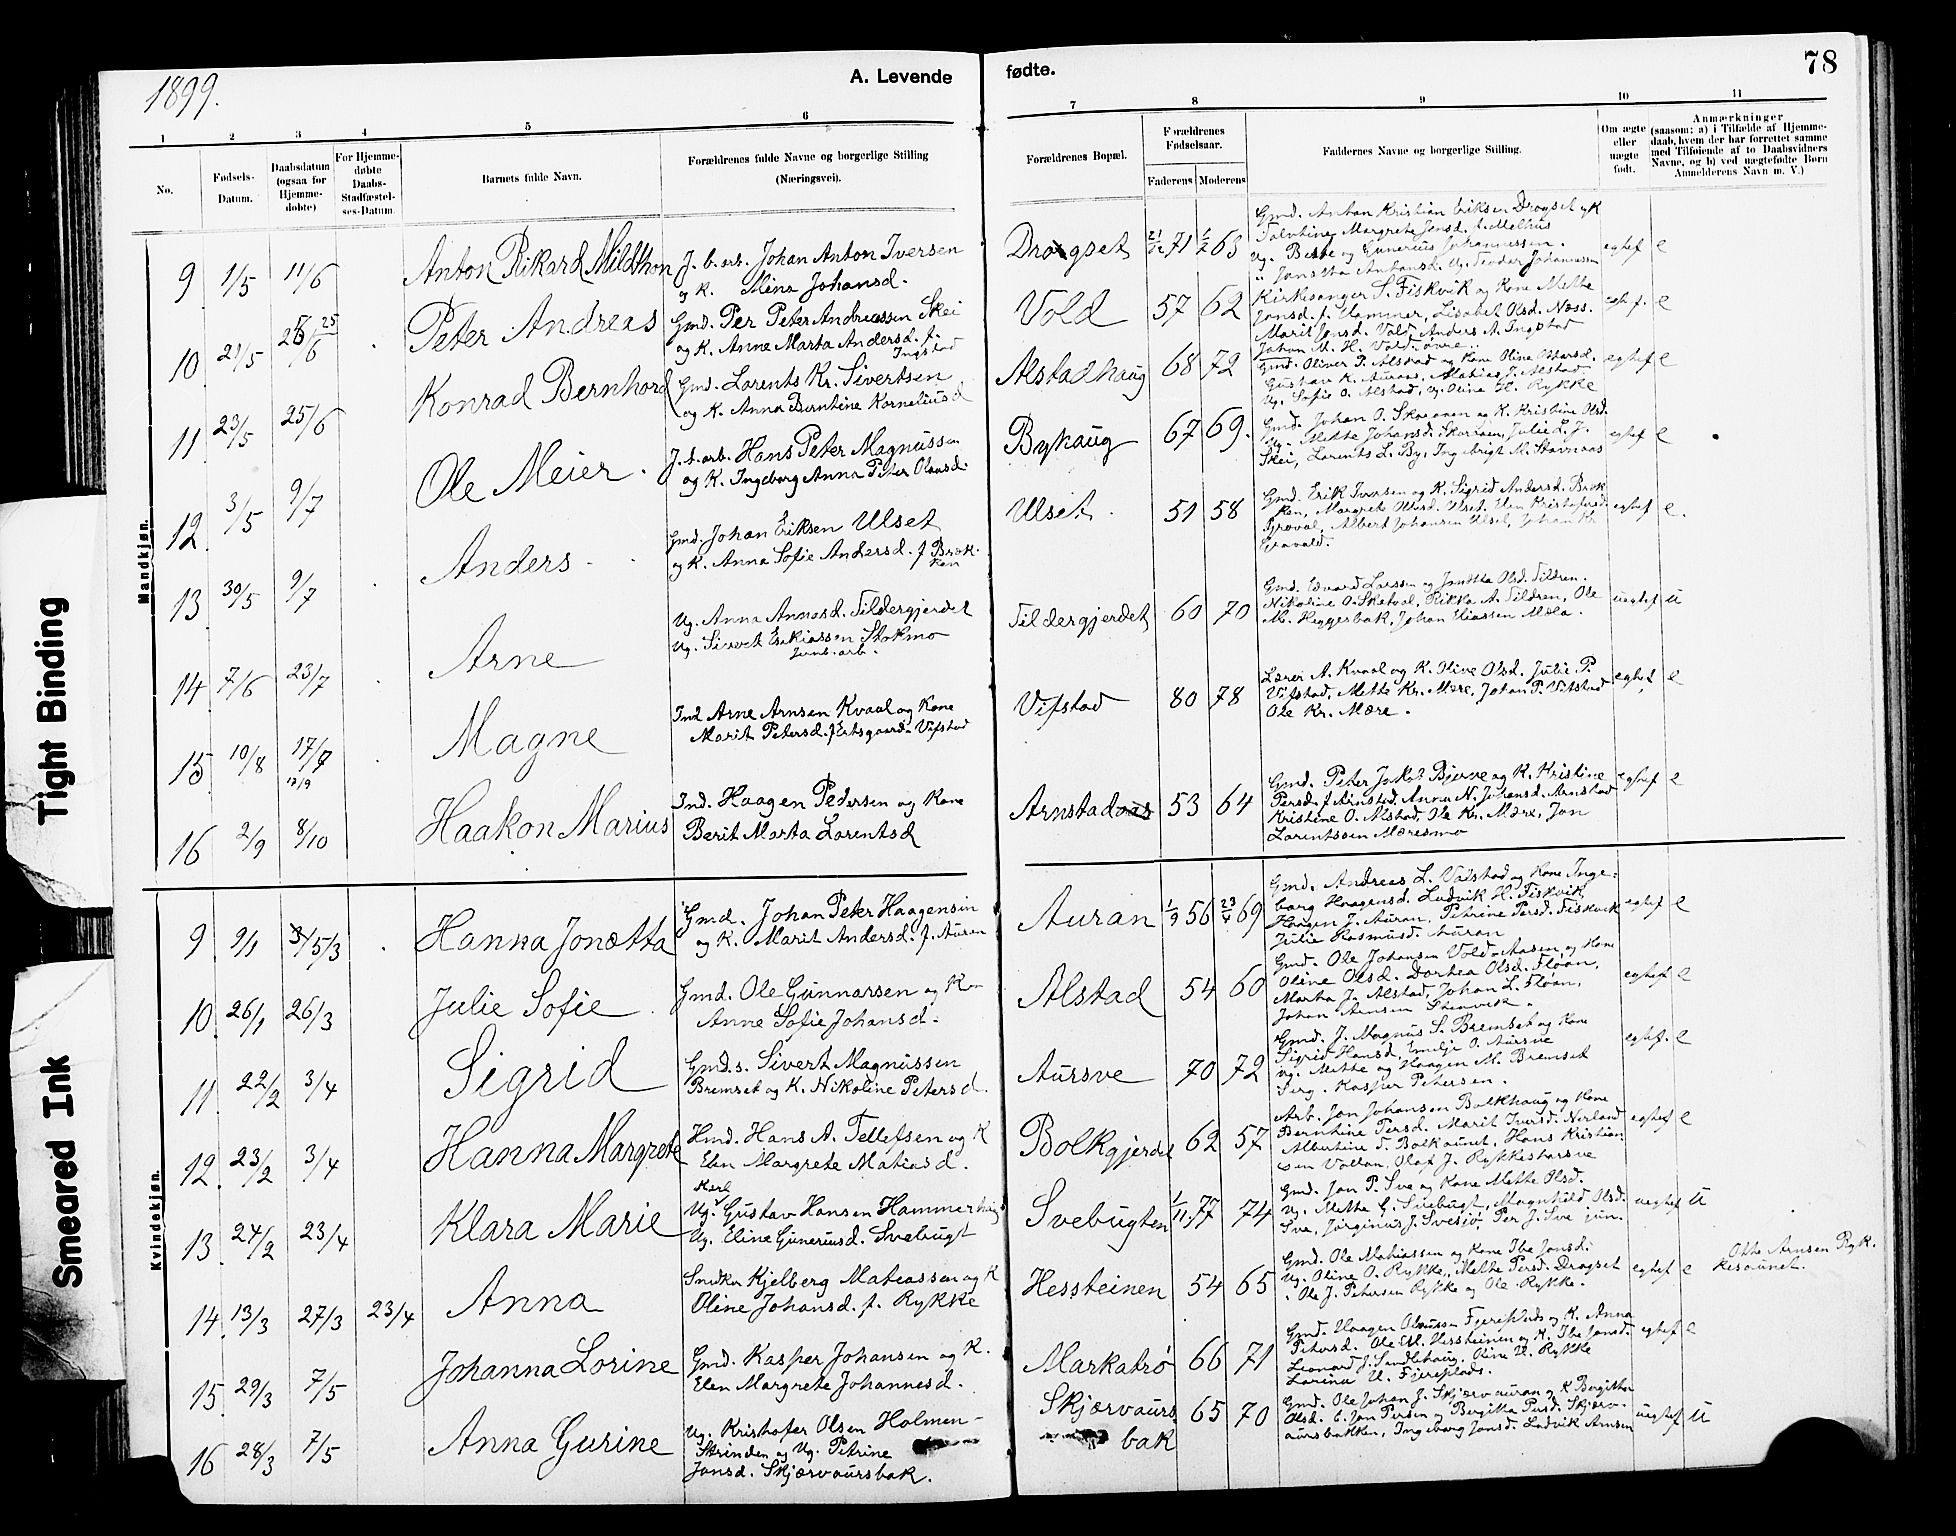 Tight Binding
Smeared Ink
1899.
A. Levende
fødte.
78
1 2 3 4 5 6 7 8 9 10 11
No.
Fødsels-
Datum.
Daabsdatum
(ogsaa for
Hjemme-
døbte)
For Hjemme-
døbte
Daabs-
Stadfæstel-
ses-Datum
Barnets fulde Navn.
Forældrenes fulde Navne og borgerlige Stilling
(Næringsvei).
Forældrenes Bopæl.
Forældrenes
Fødselsaar.
Faderens Moderens
Faddernes Navne og borgerlige Stilling.
Om ægte
eller
uægte
født.
Anmærkninger
(saasom: a) i Tilfælde af Hjemme-
daab, hvem der har forrettet samme
med Tilføiende af to Daabsvidners
Navne, og b) ved uægtefødte Børn
Anmelderens Navn m. V.)
Mandkjøn.
9 1/5 11/6 Anton Rikard Mildthon
J. b. arb. Johan Anton Iversen
og K. Mina Johansd.
Drogset 71 63
Gmd. Anton Kristian Eriksen Drogset og K
Margrete Jonsd. f. Melhus
Ug. Berte og Gunerius Johannessen.
" Jonetta Antonsd. Ug. Teodor Johannessen
egtef e
10 21/5 25/6 Peter Andreas
Gmd. Per Peter Andreassen Skei
og K. Anne Marta Andersd. f.
Ingstad
Vold 57 62
Kirkesanger S. Fiskvik og Kone Mette
Jonsd. f. Hammer, Lisabet Olsd. Næss.
Marit Jonsd. Vold, Anders A. Ingstad
Johan M. H. Vold øvre.
egtef. e
11 23/5 25/6 Konrad Bernhard
Gmd. Lorents Kr. Sivertsen
og K. Anna Berntine Korneliusd
Alstadhaug 68 72
Gmd. Oliver P. Alstad og Kone Oline Ottarsd.
Gustav K. Auran, Matias J. Alstad
Ug. Sofie O. Alstad, Ug. Oline H. Rykke
egtef e
12 3/5 9/7 Ole Meier.
J. b. arb. Hans Peter Magnussen
og K. Ingeborg Anna Peter Olausd.
Bykaug 67 69.
Gmd. Johan O. Skaanen og K. Kristine Olsd.
Ug. Mette Johansd. Skordaen, Julie L. J.
Skei, Lorents L. By, Ingebrigt M. Stavnaas
egtef e
13 30/5 9/7 Anders
Gmd. Johan Eriksen Ulset
og K. Anna Sofie Andersd. f Bræk-
ken
Ulset. 51 58
Gmd. Erik Iversen og K. Sigrid Andersd. Bræk
ken, Margrete Olausd. Ulset. Elen Kristofersd.
Grøval, Albert Johansen Ulset, Johan Kr.
Gravald.
egtef e.
14 7/6 23/7 Arne
Ug. Anna Arnesd. Tildergjerdet
Ug. Sivert Esekiassen Stokmo
Jernb. arb.
Tildergjerdet 60 70
Gmd. Edvard Larssen og Jonetta Olsd. Tildren.
Nikoline O. Sketval, Rikka A. Tildren, Ole
M. Heggesbak, Johan Eliassen Mæla.
uegtef u
15 10/8 17/9 Magne
17/9
Ind Arne Arnsen Kvaal og Kone
Marit Petersd. f. Ertsgaard Vifstad
Vifstad 80 78
Lærer A. Kvaal og K. Olive Olsd. Julie P.
Vifstad, Mette Kr. Mære, Johan P. Vifstad
Ole Kr. Mære.
egtef e
16 2/9 8/10 Haakon Marius
Ind. Haagen Pedersen og Kone
Berit Marta Larentsd
Arnstadaas 53 64
Gmd. Peter Jakob Bjerve og K. Kristine
Persd. f. Arnstad, Anna N. Johansd. Arnstad
Kristine O. Alstad, Ole Kr. Mære, Jon
Larentssen Mæresmo
egtef e
Kvindekjøn.
9 9/1 5/3 Hanna Jonætta
Gmd. Johan Peter Haagensen
og K. Marit Andersd. f. Auren
Auran 1/9 56 23/4 69
Gmd. Andreas L. Valstad og Kone Inge-
borg Haagensd. Ludvik H. Fiskvik
Haagen J. Auran, Petrine Persd. Fiskvik
Julie Rasmusd. Auran
egtef e
10 26/1 26/3 Julie Sofie
Gmd. Ole Gunnarsen og Ko-
Anne Sofie Johansd.
Alstad 54 60
Gmd. Ole Johansen Vold-Aasen og Kone
Oline Olsd. Dortea Olsd. Fløan,
Marta J. Alstad, Johan L. Fløan,
Johan Arnsen Stenvik.
egtef e
11 22/2 3/4 Sigrid
Gmd. s. Sivert Magnussen
Bremset og K. Nikoline Petersd.
Aursve 70 72
Gmd. J. Magnus S. Bremset og Kone
Sigrid Hansd, Emelje O. Aursve
Ug. Mette og Haagen M. Bremset
Serg. Kasper Petersen.
egtef. e
12 23/2 3/4 Hanna Margrete
Hmd. Hans A. Tellefsen og K
Elen Margrete Matiasd.
Bolkgjerdet 62 57
Arb. Jon Johansen Bolkhaug og Kone
Berntine Persd. Marit Iversd. Norland
Albertine T. Bolkaunet, Hans Kristian
sen Vollan, Olaf J. Rykkestørsve
egtef e
13 24/2 23/4 Klara Marie
Karl
Ug. Gustav Hansen Hammerhaug
Ug. Eline Guneriusd. Svebugt
Svebugten 1/11 77 74
Gmd. Jon P. Sve og Kone Mette Olsd.
Ug. Mette G. Svebugt, Magnhild Olsd.
Sve, Jørginus J. Svesjø, Per J. Sve jun.
uegtef u
14 13/3 27/3 23/4 Anna
Snedker Kjelberg Matiassen og K
Oline Johansd. f. Rykke
Hessteinen 54 65
Gmd. Ole Matiassen og Kone Ibe Jonsd.
Ug. Oline O. Rykke, Mette Persd. Drogset
Ole J. Petersen Rykke og Ole Rykke.
egtef e
Otto Arnsen Ryk-
kesaunet.
15 29/3 7/5 Johanna Lorine
Gmd. Kasper Johansen og K.
Elen Margrete Johannesd.
Markatrø 66 71
Gmd. Haagen Olaussen Fjereplads og K. Anna
Petersd. Ole M. Hessteinen og K. Ibe Jonsd.
Leonard J. Sandlehaug, Oline U. Rykke
Larina U. Fjereplads.
egtef e
16 28/3 7/5 Anna Gurine
Ug. Kristofer Olsen Holmen-
Strinden og Ug. Petrine
Jonsd. Skjærvaursbak.
Skjærvaurs
bak
65 70
Gmd. Ole Johan J. Skjærvauran og K Bergitha
Olsd. E. Jon Persen og Bergitta Persd. Skjærv-
aursbakken, Ingeborg Jonsd. Ludvik Arnsen
uegtef u